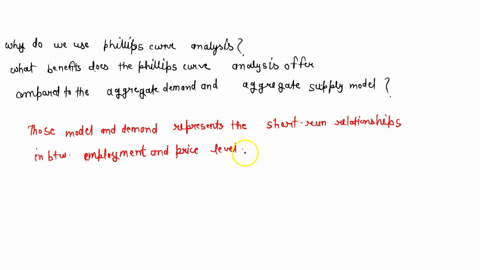 why do we use phillips curve analysis?
what benefits does the phillips curve analysis offer
compared to the aggregate demand and aggregate supply model?
Those model and demand represents the short-run relationships
in btw. employment and price level.